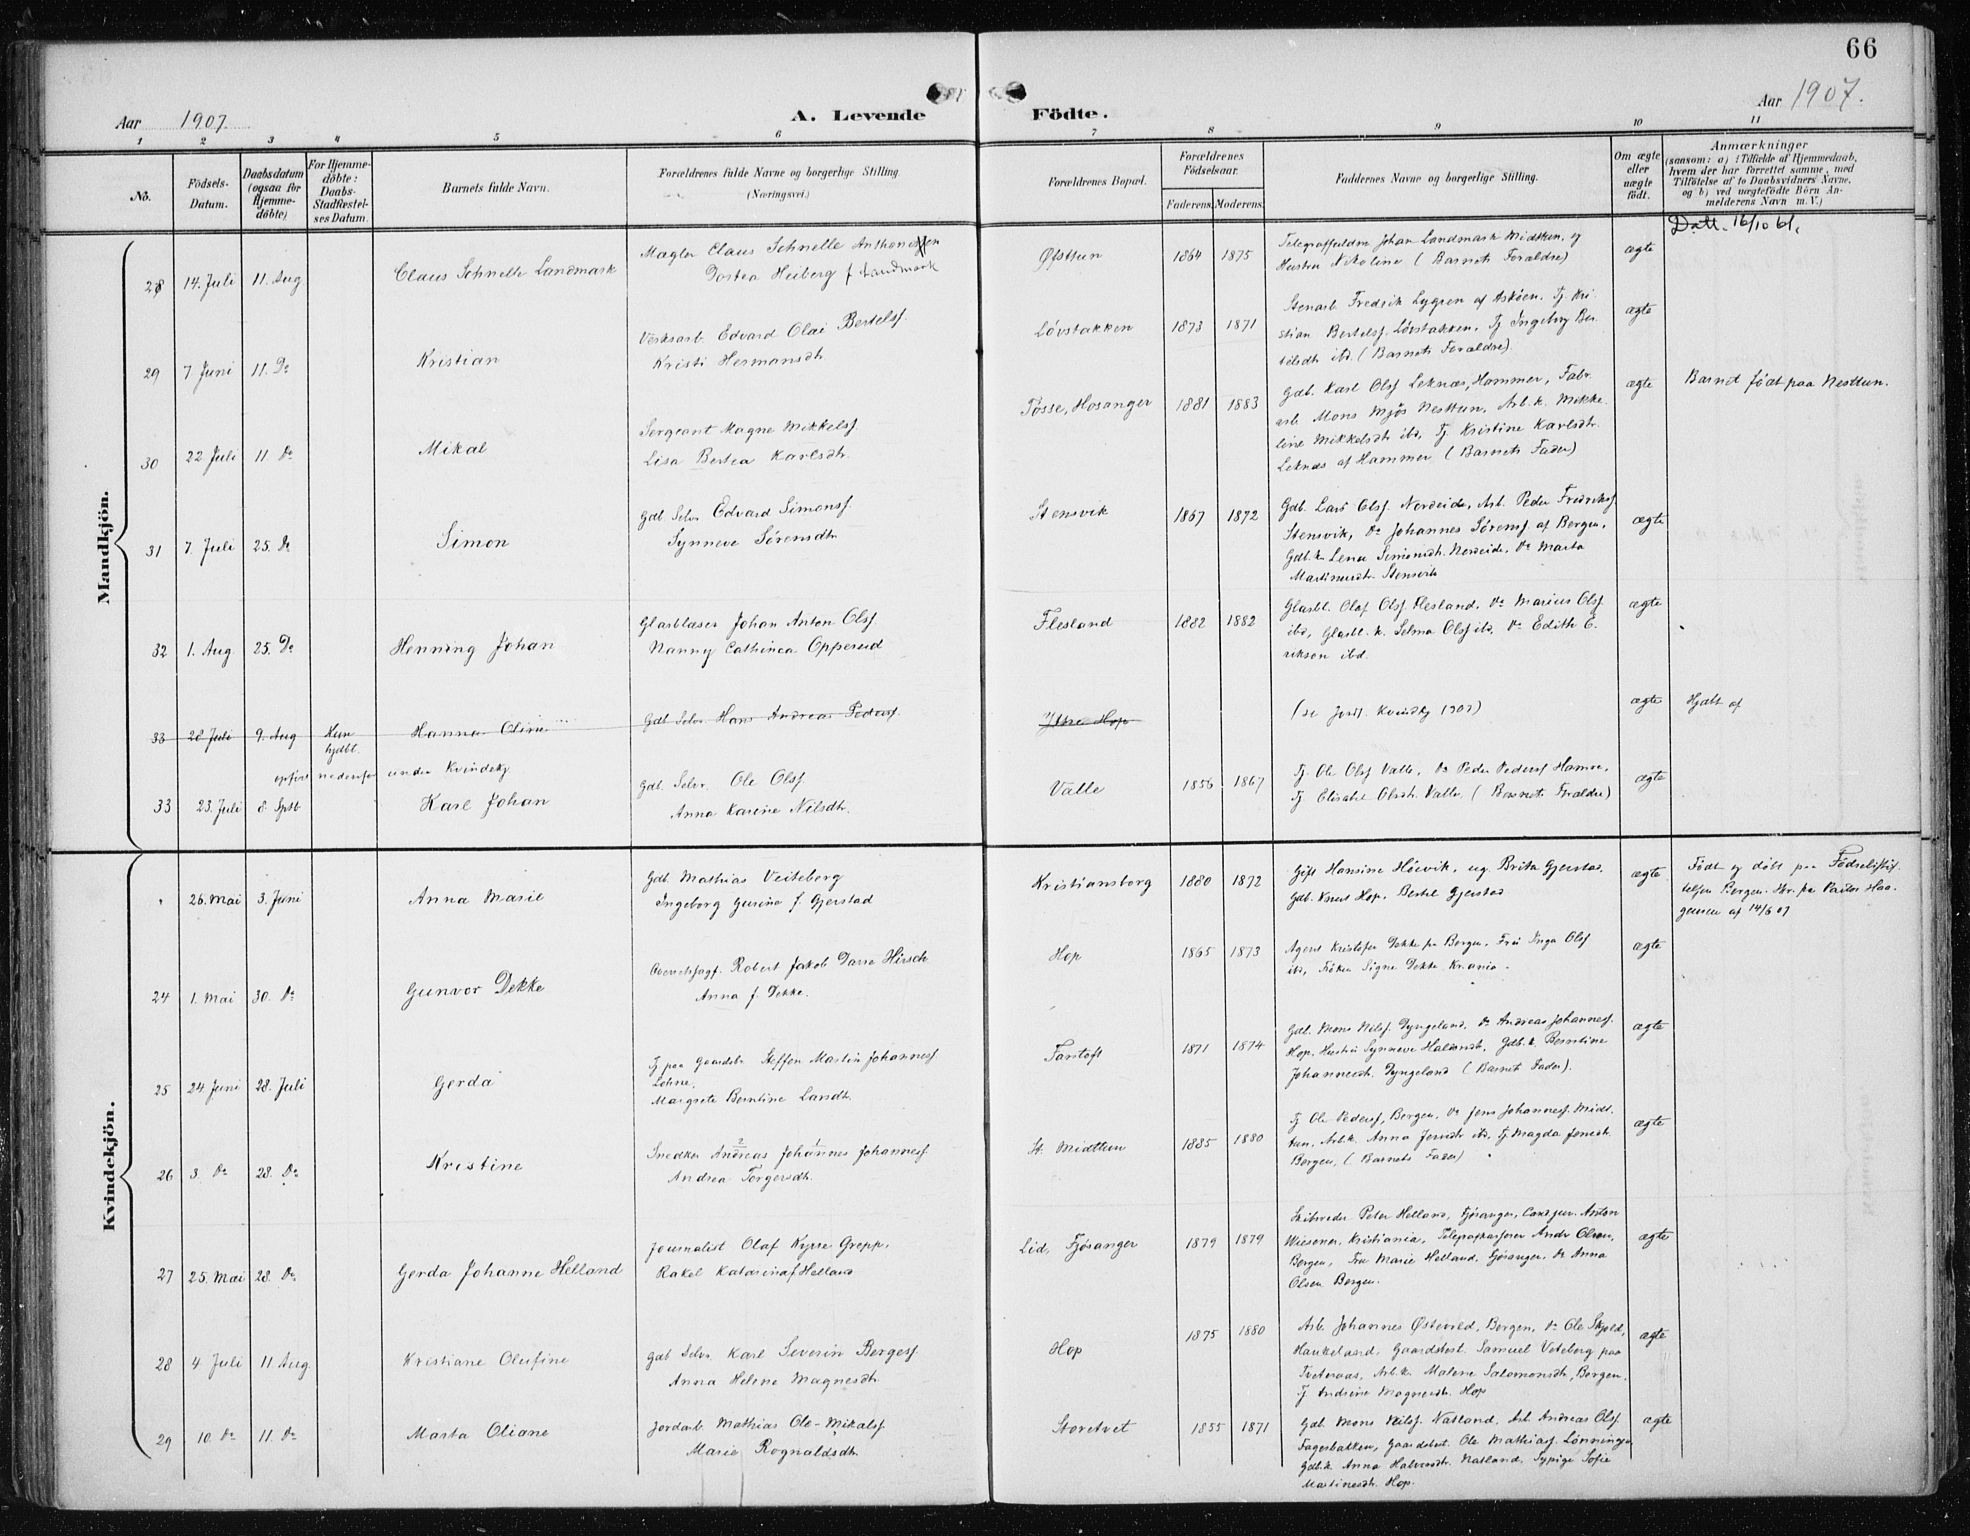 66
Aar 1907.
A. Levende Födte.
Aar 1907.
1 2 3 4 5 6 7 8 9 10 11
No.
Födsels-Datum.
Daabsdatum (ogsaa for Hjemme-döbte)
For Hjemme-döbte: Daabs-Stadfæstel-ses Datum.
Barnets fulde Navn.
Forældrenes fulde Navne og borgerlige Stilling. (Næringsvei.)
Forældrenes Bopæl.
Forældrenes Födselsaar.
Faderens. Moderens.
Faddernes Navne og borgerlige Stilling.
Om ægte eller uægte født.
Anmærkninger
(saasom: a) i Tilfælde af Hjemmedaab,
hvem der har forrettet samme, med
Tilföielse af to Daabsvidners Navne,
og b) ved uægtefödte Börn An-
melderens Navn m. V.)
Mandkjön.
28 14. Juli 11. Aug Claus Schnelle Landmark
Mægler Claus Schnelle Anthonisen
Dortea Heiberg f. Landmark
Øfsttun 1864 1875
Johan Landmark Midttun, og
Hustru Nikoline (Barnets Forældre)
ægte
Datt. 16/10 61.
29 7 Juni 11. Do Kristian
Verksarb. Edvard Olai Bertelsf.
Kristi Hermansdtr
Løvstakken 1873 1871
Stenarb. Fredrik Lygren af Askøen. Tj. Kri-
stian Bertelsf. Løvstakken, Tj Ingeborg Ber-
telsdtr ibd. (Barnets Forældre)
ægte
30 22 Juli 11 Do Mikal
Sergeant Magne Mikkelsf.
Lisa Bertea Karlsdtr.
Tøsse, Hosanger 1881 1883
Gdb. Karl Olsf Leknæs, Hammer, Fabr.
arb. Mons Mjøs Nesttun, Arb.k. Mikke-
line Mikkelsdtr ibd, Tj. Kristine Karlsdtr.
Leknæs af Hammer (Barnets Fader)
ægte
Barnet født paa Nesttun.
31 7. Juli 25. Do Simon
Gdb. Selv. Edvard Simonsf.
Synneve Sørensdtr
Stensvik 1867 1872
Gdb. Lars Olsf. Nordeide, Arb. Peder Fredriksf
Stensvik, Do Johannes Sørensf. af Bergen,
Gdb.k. Lena Simonsdtr. Nordeide, Do Marta
Martinusdtr. Stensvik
ægte
32 1. Aug. 25. Do Henning Johan
Glasblaser Johan Anton Olsf
Nanny Cathinca Oppesud
Flesland 1882 1882
Glasbl. Olaf Olsf Flesland, Do Marius Olsf
ibd, Glasbl. k. Selma Olsf ibd, Do Edith E-
rikson ibd.
ægte
33 28 Juli 9. Aug Kun hjdbt. Hanna Oline
Gdb Selv Hans Andreas Pedersf.
Ytre Hop
(se Kvindekj 1907)
ægte
Hjdbt af
opført nedenfor under Kvindekj
33 23. Juli 8 Sptb Karl Johan
Gdb. Selv. Ole Olsf
Anna Karine Nilsdtr.
Valle 1856 1867
Tj. Ole Olsf Valle, Do Peder Pedersf Hamre,
Tj. Elisabet Olsdtr. Valle. (Barnets Forældre)
ægte
Kvindekjön.
26. Mai 3. Juni Anna Marie
Gdb. Mathias Veiteberg
Ingeborg Gurine f. Gjerstad
Kristiansborg 1880 1872
Gift Hansine Høivik, ug. Brita Gjerstad,
Gdb. Knut Hop, Bertel Gjerstad
ægte
Født og døbt paa Fødselsstif-
telsen Bergen.
af 14/6 07
24 1. Mai 30. Do Gunvor Dekke
Overretssagf. Robert Jakob Darre Hirsch
Anna f. Dekke.
Hop 1865 1873
Agent Kristofer Dekke pr Bergen, Fru Inga Olsf
ibd, Frøken Signe Dekke Krania.
ægte
25 24 Juni 28. Juli Gerda
Tj paa Gaardsbr. Steffen Martin Johannesf
Lohne,
Margrete Berntine Larsdtr.
Fantoft 1871 1874
Gdb. Mons Nilsf. Dyngeland, Do Andreas Johannesf.
Hop, Hustru Synneve Halandt, Gdb.k Berntine
Johannesdtr. Dyngeland (Barnets Fader).
ægte
26 3. Do 28. Do Kristine
Snedker Andreas Johannes Johannesf
Andrea Torgersdtr.
St. Midttun 1885 1880
Tj Ole Pedersf, Bergen, Do Jens Johannesf. Midt-
tun, Arb.k. Anna Jensdtr ibd, Tj. Magda Jensdtr.
Bergen, (Barnets Fader)
ægte
27 25. Mai 28. Do Gerda Johanne Helland
Journalist Olaf Kyrre Grepp.
Rakel Katarina f Helland
Lid, Fjøsanger 1879 1879
Skibsreder Peter Helland, Fjøsanger, Cand jur. Anton
Wiesener, Kristiania, Telegrafkasserer Andr Olsen,
Bergen, Fru Marie Helland, Fjøsanger, Do Anna
Olsen Bergen.
ægte
28 4 Juli 11 Aug. Kristiane Olufine
Gdb Selv. Karl Severin Bergesf.
Anna Helene Magnesdtr
Hop 1875 1880
Arb. Johannes Østevold, Bergen, Do Ole Skjold,
Haukeland. Gaardsbest. Samuel Veteberg paa
Tveteraas, Arb.k. Malene Salomonsdtr, Bergen.
Tj Andrine Magnesdtr. Hop
ægte
29 10. Do 11. Do Marta Oliane
Jordarb. Mathias Ole-Mikalsf.
Marie Rognaldsdtr
Storetvet 1855 1871
Gdb. Mons Nilsf. Natland, Arb. Andreas Olsf
Fagerbakken, Gaardsbest. Ole Mathiasf. Lønningen,
Gdb.k. Anna Halvorsdtr. Natland, Sypige Sofie
Martinesdtr. Hop.
ægte